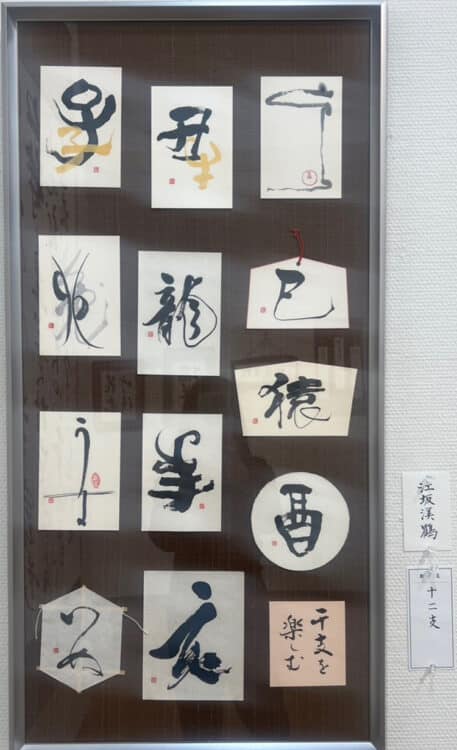 子
子
丑
牛
卯
龍
巳
うま
羊
猿
酉
いぬ
亥
干支を
楽しむ
江坂渓鶴
十二支